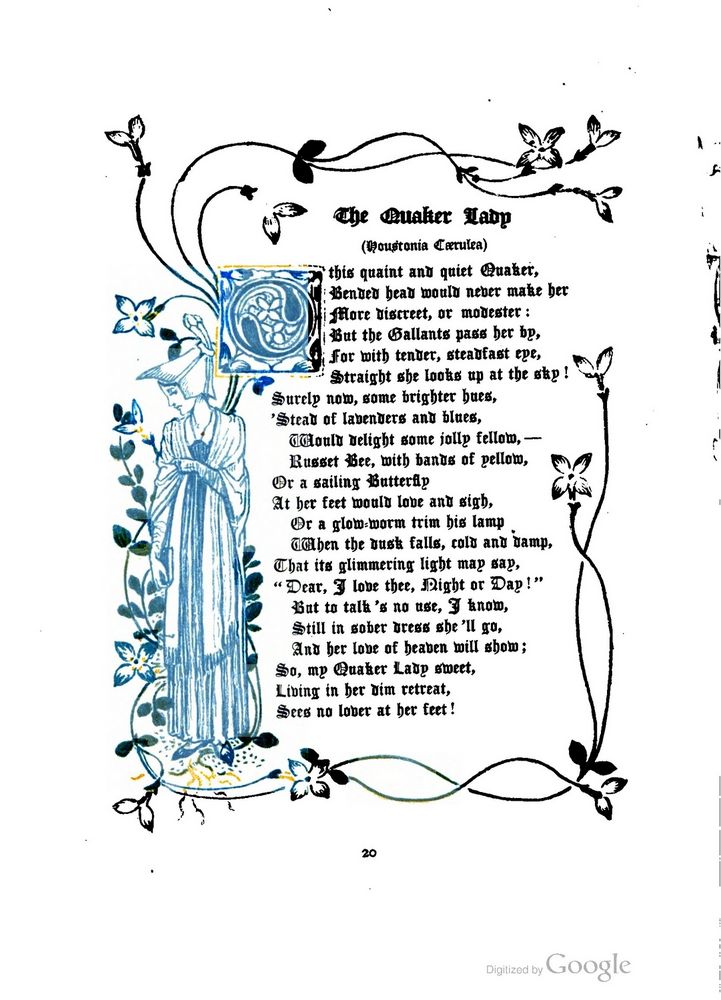 The Quaker Lady
(Houstonia Cærulea)
O this quaint and quiet Quaker,
Bended head would never make her
More discreet, or modester :
But the Gallants pass her by,
For with tender, steadfast eye,
Straight she looks up at the sky !
Surely now, some brighter hues,
'Stead of lavenders and blues,
Would delight some jolly fellow, —
Russet Bee, with bands of yellow,
Or a sailing Butterfly
At her feet would love and sigh,
Or a glow-worm trim his lamp
When the dusk falls, cold and damp,
That its glimmering light may say,
“Dear, I love thee, Night or Day!”
But to talk's no use, I know,
Still in sober dress she'll go,
And her love of heaven will show;
So, my Quaker Lady sweet,
Living in her dim retreat,
Sees no lover at her feet!
20
Digitized by Google